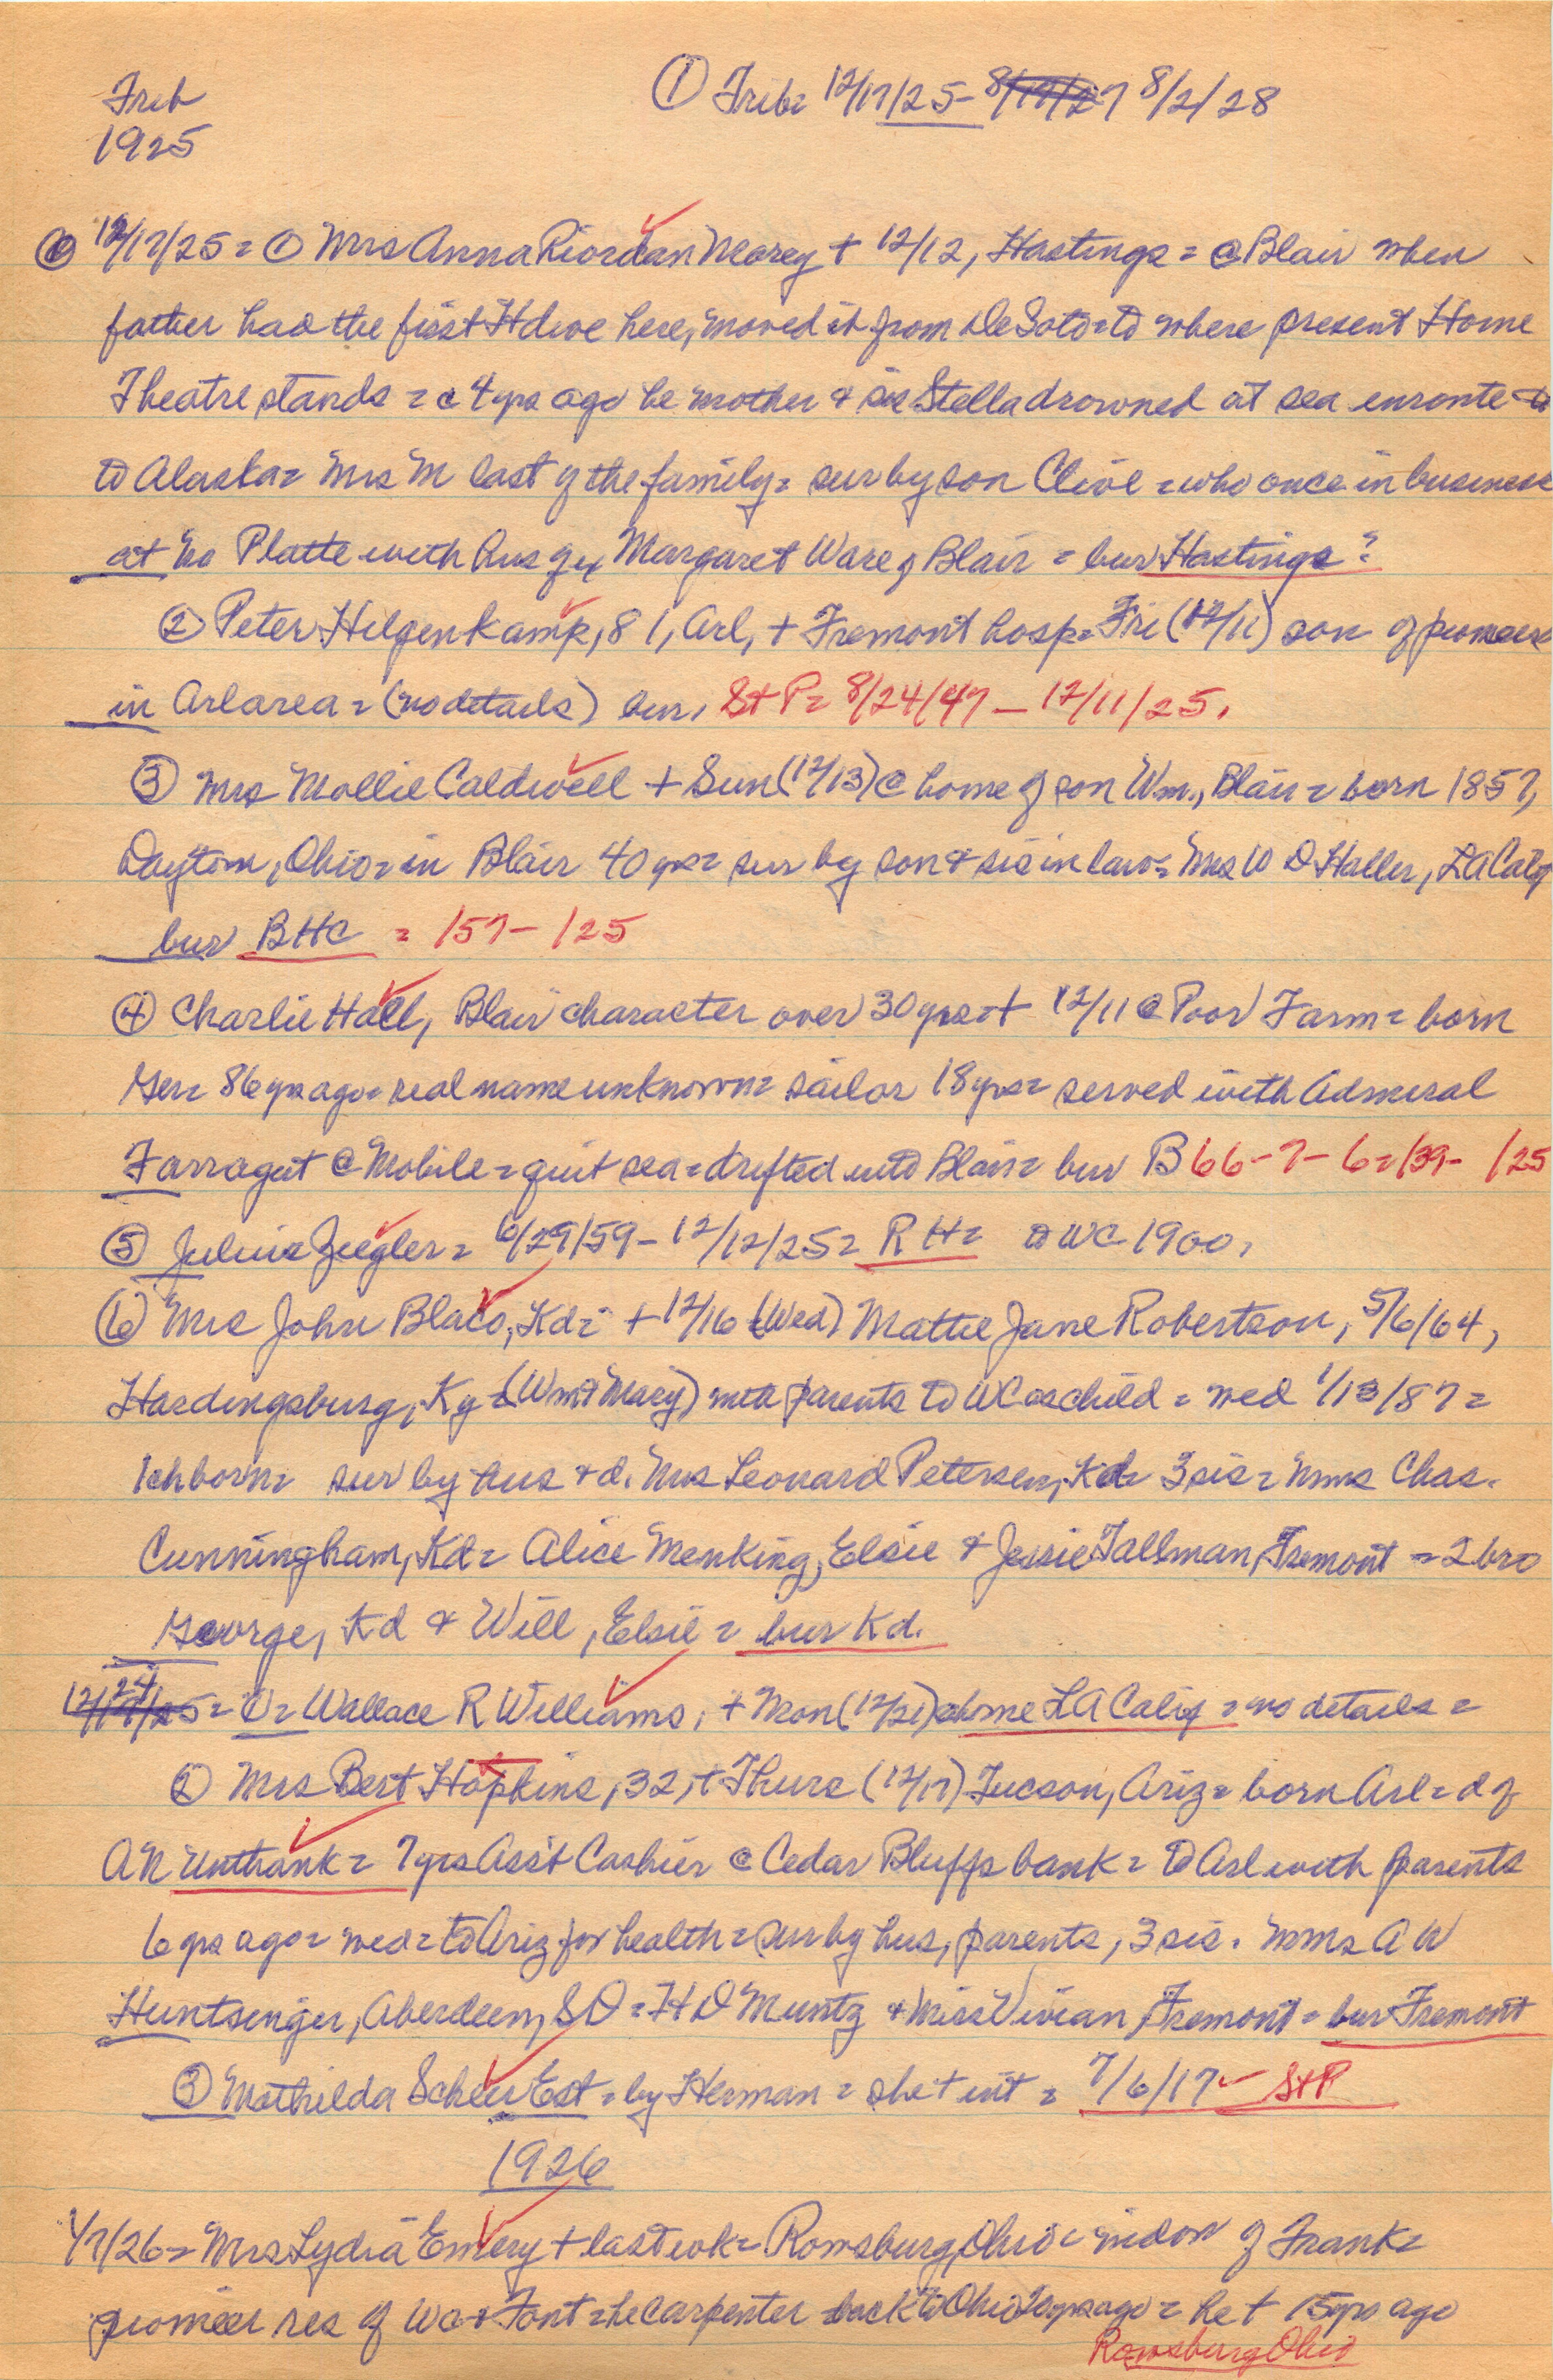 Trib
1925
① Trib= 12/17/25- 8/17/27 8/2/28
12/17/25 = ① Mrs Anna Riordan Morey + 12/12, Hastings = @ Blair when
father had the first Hdwe here, moved it from DeSoto = to where present Home
Theatre stands = c 4 yrs ago he mother & sis Stella drowned at sea enroute
to Alaska = Mrs M last of the family = sur by son Clive = who once in business
at No Platte with hus of Margaret Ware of Blair = bur Hastings?
② Peter Hilgenkamp, 81, Arl, + Fremont hosp = Fri (12/11) son of pioneers
in Arl area = (no details) bur, St P = 8/24/47 - 12/11/25.
③ Mrs Mollie Caldwell + Sun (12/13) @ home of son Wm., Blair = born 1857,
Dayton, Ohio = in Blair 40 yrs = sur by son & sis in law = Mrs W D Haller, LA Calif
bur BHC = /57 - /25
④ Charlie Hall, Blair character over 30 yrs = + 12/11 @ Poor Farm = born
Ger = 86 yrs ago = real name unknown = sailor 18 yrs = served with Admiral
Farragut @ Mobile = quit sea = drifted into Blair = bur B 66-7-6 = /39 - /25
⑤ Julius Ziegler = 6/29/59 - 12/12/25 = R H = to WC 1900.
⑥ Mrs John Blaco, Kd = + 12/16 (Wed) Mattie Jane Robertson, 5/6/64,
Hardingsburg, Ky = (Wm & Mary) with parents to WC as child = wed 1/13/87 =
1 ch born = sur by hus & d. Mrs Leonard Petersen, Kd = 3 sis = Mms Chas.
Cunningham, Kd = Alice Menking, Elsie & Jessie Tallman, Fremont = 2 bro
George, Kd & Will, Elsie = bur Kd.
12/24 = ① = Wallace R Williams, + Mon (12/21) @ home LA Calif = no details =
② Mrs Bert Hopkins, 32, + Thurs (12/17) Tucson, Ariz = born Arl = d of
A N Unthank = 7 yrs Ass't Cashier @ Cedar Bluffs bank = to Arl with parents
6 yrs ago = wed = to Ariz for health = sur by hus, parents, 3 sis. Mms A W
Huntsinger, Aberdeen, SD = H D Muntz & Miss Vivian, Fremont = bur Fremont
③ Mathilda Scheer Est = by Herman = she + int = 7/6/17 - St P
1926
1/7/26 = Mrs Lydia Emery + last wk = Rowsburg, Ohio = widow of Frank =
pioneer res of WC & Font = he carpenter = back to Ohio 20 yrs ago = he + 15 yrs ago
Rowsburg Ohio